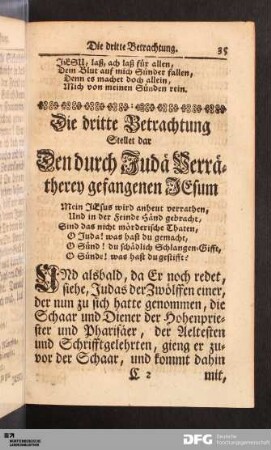 Die dritte Betrachtung. 35
JESU, laß, ach laß für allen,
Dein Blut auf mich Sünder fallen,
Denn es machet doch allein,
Mich von meinen Sünden rein.
Die dritte Betrachtung
Stellet dar
Den durch Judä Verrä-
therey gefangenen JEsum
Mein JEsus wird anheut verrathen,
Und in der Feinde Händ gebracht,
Sind das nicht mörderische Thaten,
O Juda! was hast du gemacht,
O Sünd! du schädlich Schlangen-Gifft,
O Sünde! was hast du gestifft?
UNd alsbald, da Er noch redet,
siehe, Judas der Zwölffen einer,
der nun zu sich hatte genommen, die
Schaar und Diener der Hohenprie-
ster und Pharisäer, der Aeltesten
und Schrifftgelehrten, gieng er zu-
vor der Schaar, und kommt dahin
C 2 mit,
DFG Deutsche
Forschungsgemeinschaft